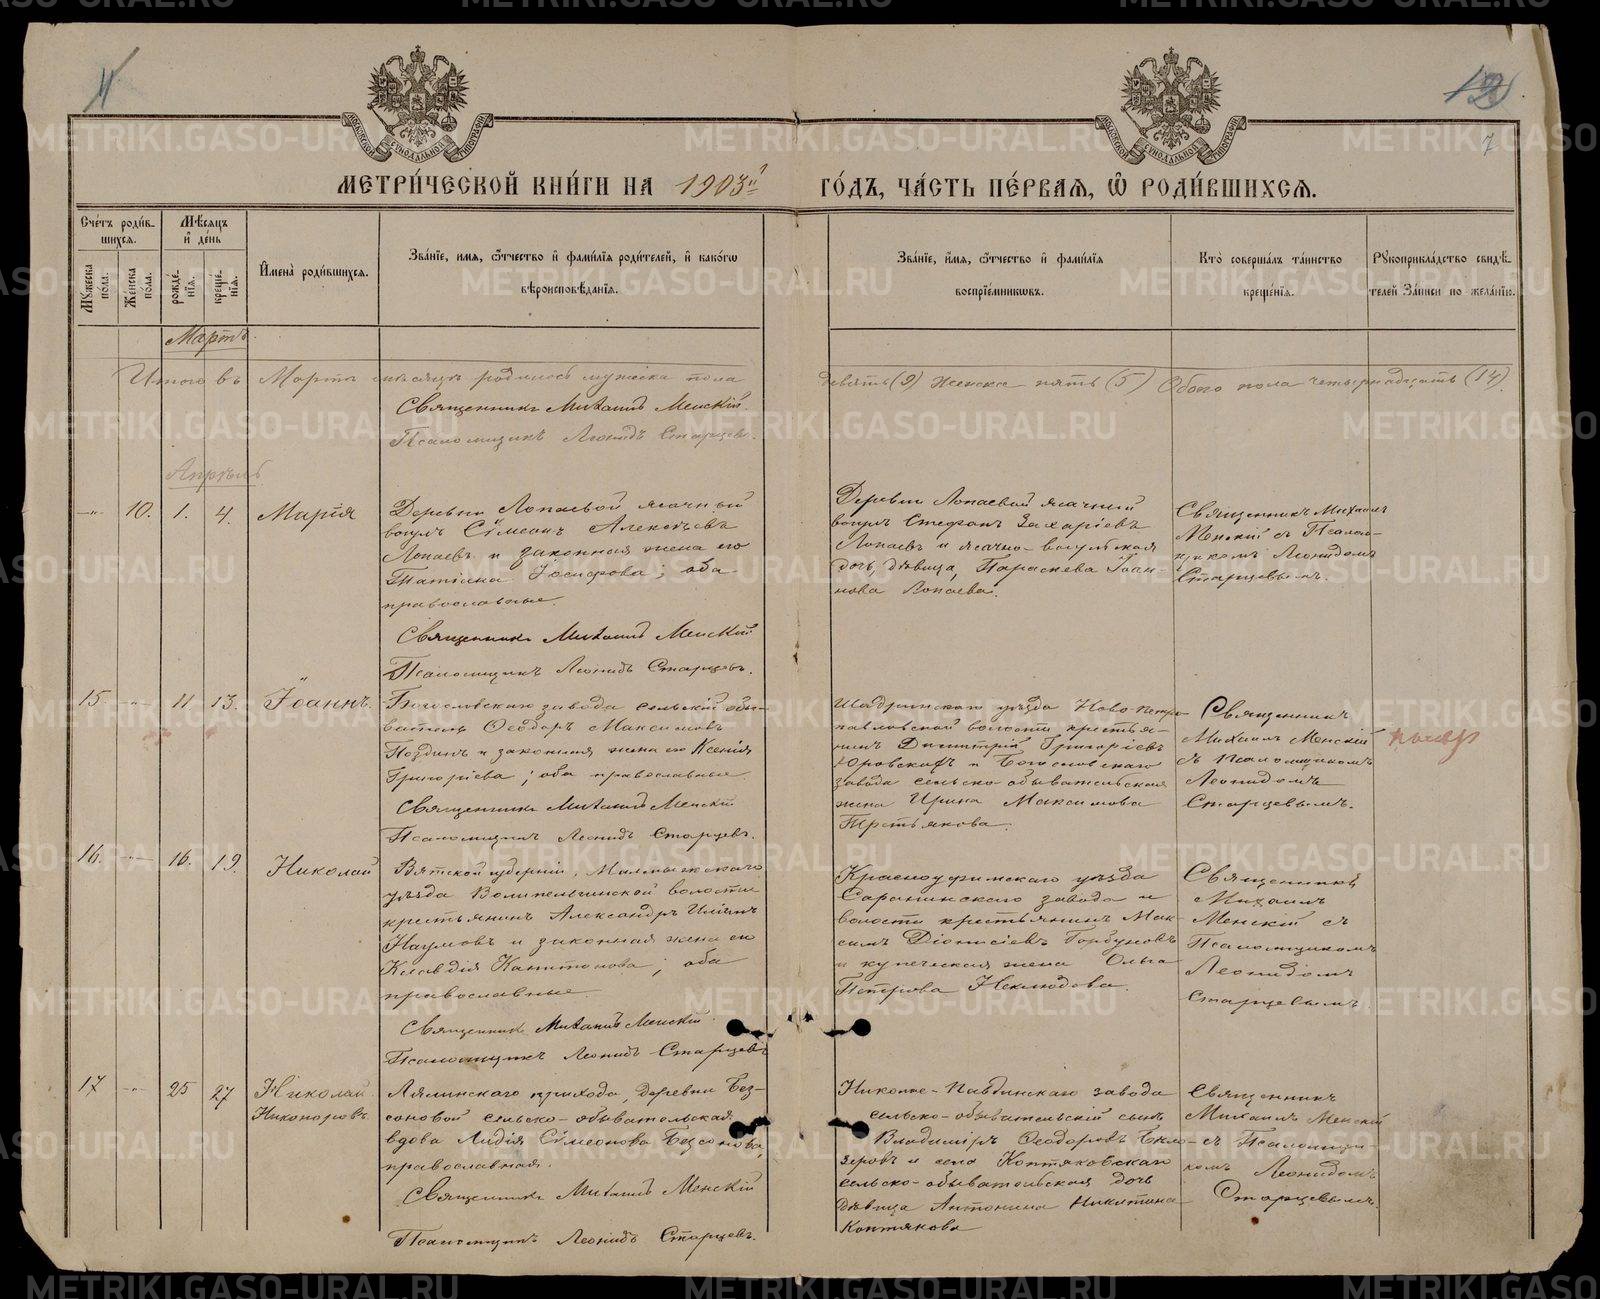 МЕТРИ́ЧЕСКОЙ КНИ́ГИ НА 1903й ГО́ДЪ, ЧА́СТЬ ПЕ́РВАЯ, Ѡ РОДИ́ВШИХСЯ.
12
7
МОСКОВСКОЙ СѴНОДАЛЬНОЙ ТИПОГРАФІИ
МОСКОВСКОЙ СѴНОДАЛЬНОЙ ТИПОГРАФІИ
Сче́тъ роди́в-
шихся.
Мꙋжеска по́ла.
Же́нска по́ла.
Мѣ́сяцъ
и҆ де́нь
рожде́-
нїя.
креще́-
нїя.
И҆мена̀ роди́вшихся.
Зва́нїе, и҆мя, ѻ҆́тчество и҆ фами́лїя роди́телей, и҆ како́гѡ
вѣроисповѣ́данїя.
Зва́нїе, и҆́мя, ѻ҆́тчество и҆ фами́лїя
воспрїе́мниковъ.
Кто̀ соверша́лъ та́инство
креще́нїя.
Рꙋкоприкла́дство свидѣ́-
телей за́писи по жела́нїю.
Мартъ
Итого въ Мартѣ мѣсяцѣ родилось мужеска пола девять (9) женска пять (5) Обоего пола четырнадцать (14).
Священникъ Михаилъ Менскій.
Псаломщикъ Леонидъ Старцевъ.
Апрѣль
10. 1. 4. Марія
Деревни Лопаевой ясачный
вогулъ Сѵмеонъ Алексѣевъ
Лопаевъ и законная жена его
Татіана Іосифова; оба
православные.
Священникъ Михаилъ Менскій
Псаломщикъ Леонидъ Старцевъ.
Деревни Лопаевой ясачный
вогулъ Стефанъ Захаріевъ
Лопаевъ и ясачно-вогульская
дочь, дѣвица, Параскева Іоан-
нова Лопаева.
Священникъ Михаилъ
Менскій съ Псалом-
щикомъ Леонидомъ
Старцевымъ.
15. 11 13. Іоаннъ.
Богословскаго завода сельскій обы-
ватель Ѳеодоръ Максимовъ
и законная жена его Ксенія
Григоріева; оба православные.
Священникъ Михаилъ Менскій
Псаломщикъ Леонидъ Старцевъ.
Шадринскаго уѣзда Ново Петро-
павловской волости крестья-
нинъ Димитрій Григоріевъ
Юровскихъ и Богословскаго
завода сельско-обывательская
жена Ирина Максимова
Третьякова.
Священникъ
Михаилъ Менскій
съ псаломщикомъ
Леонидомъ
Старцевымъ.
16. 16. 19. Николай
Вятской губерніи, Малмыжскаго
уѣзда Волипельгинской волости
крестьянинъ Александръ Ильинъ
Наумовъ и законная жена его
Клавдія Капитонова; оба
православные.
Священникъ Михаилъ Менскій.
Псаломщикъ Леонидъ Старцевъ
Красноуфимскаго уѣзда
Саранинскаго завода и
волости крестьянинъ Мак-
симъ Діонисіевъ Горбуновъ
и купеческая жена Ольга
Петрова Неклюдова.
Священникъ
Михаилъ
Менскій съ
Псаломщикомъ
Леонидомъ
Старцевымъ.
17 25 27 Николай
Никоноровъ
Лялинскаго прихода, деревни Без-
соновой сельско-обывательская
вдова Лидія Сѵмеонова Безсонова,
православная.
Священникъ Михаилъ Менскій
Псаломщикъ Леонидъ Старцевъ.
Николае-Павдинскаго завода
сельско-обывательскій сынъ
Владиміръ Ѳеодоровъ Бѣло-
зеровъ и села Коптяковскаго
сельско-обывательская дочь
дѣвица Антонина Никитина
Коптякова
Священникъ
Михаилъ Менскій
съ Псаломщи-
комъ Леонидомъ
Старцевымъ.
METRIKI.GASO-URAL.RU